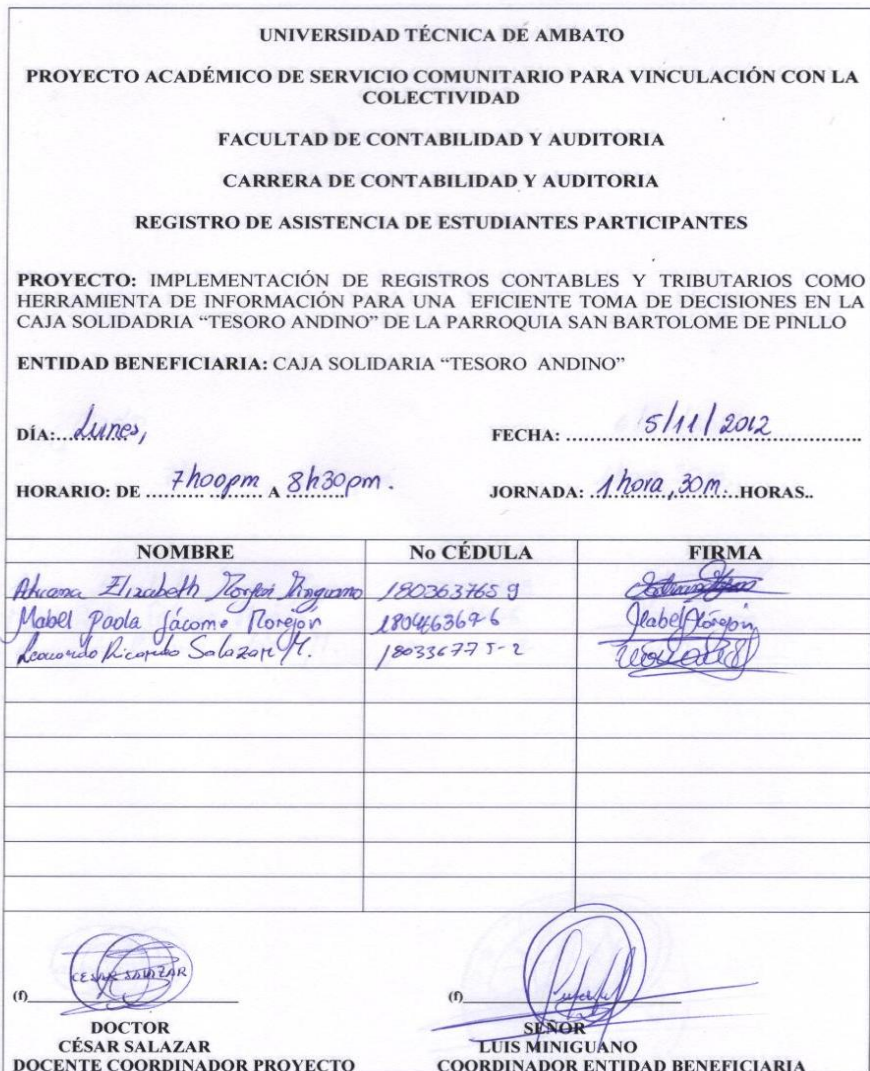 UNIVERSIDAD TÉCNICA DE AMBATO
PROYECTO ACADÉMICO DE SERVICIO COMUNITARIO PARA VINCULACIÓN CON LA
COLECTIVIDAD
FACULTAD DE CONTABILIDAD Y AUDITORIA
CARRERA DE CONTABILIDAD Y AUDITORIA
REGISTRO DE ASISTENCIA DE ESTUDIANTES PARTICIPANTES
PROYECTO: IMPLEMENTACIÓN DE REGISTROS CONTABLES Y TRIBUTARIOS COMO
HERRAMIENTA DE INFORMACIÓN PARA UNA EFICIENTE TOMA DE DECISIONES EN LA
CAJA SOLIDADRIA “TESORO ANDINO” DE LA PARROQUIA SAN BARTOLOME DE PINLLO
ENTIDAD BENEFICIARIA: CAJA SOLIDARIA “TESORO ANDINO”
DÍA:...Lunes, FECHA: ........5/11/2012........
HORARIO: DE ....7h00pm.... A 8h30pm. JORNADA: .1 hora, 30m...HORAS..
NOMBRE No CÉDULA FIRMA
Elizabeth 180363765 9
Mabel Paola Jácome Morejón Mabel Morejón
Ricardo Salazar M. 18033677 5-2
CESAR SALAZAR
(f) (f)
DOCTOR SEÑOR
CÉSAR SALAZAR LUIS MINIGUANO
DOCENTE COORDINADOR PROYECTO COORDINADOR ENTIDAD BENEFICIARIA